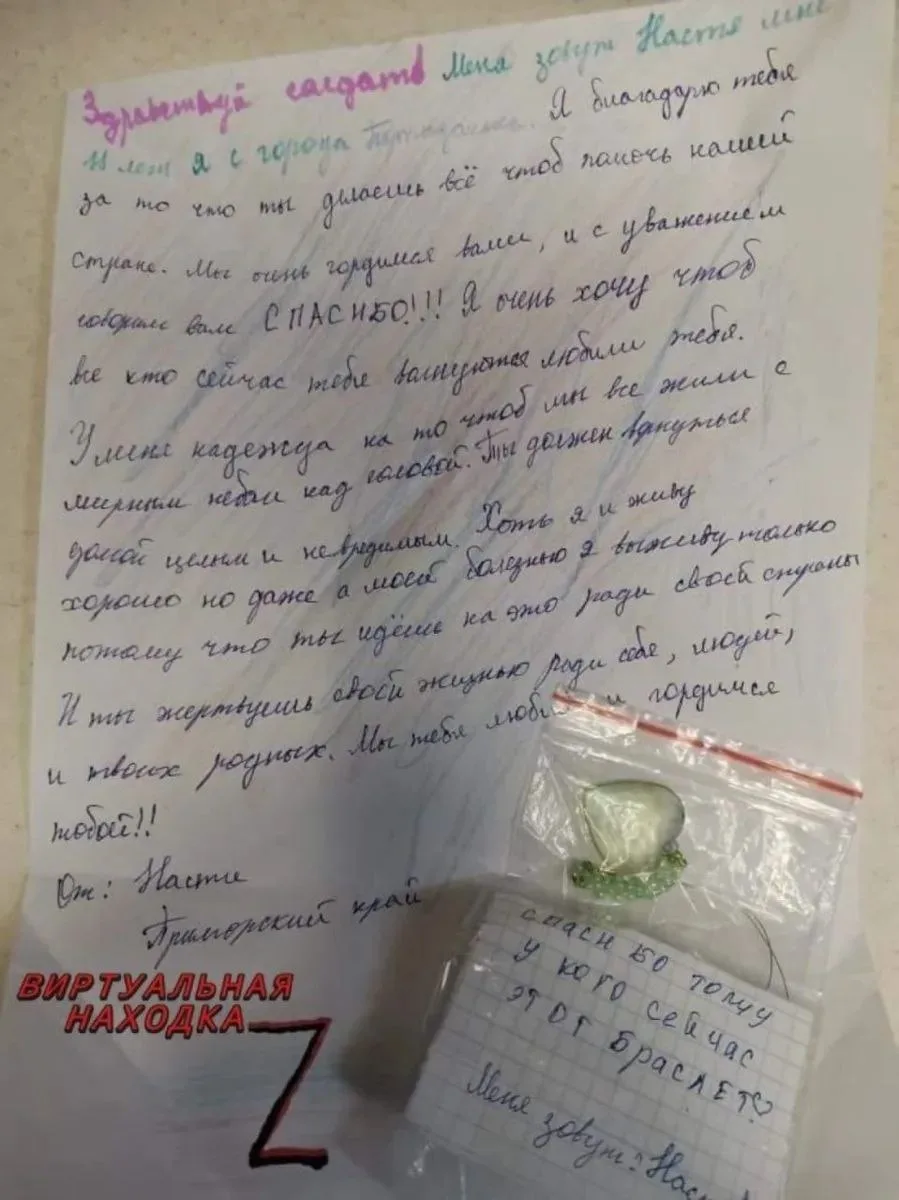 Здравствуй солдать Меня зовут Настя мне
11 лет я с города Я благодарю тебя
за то что ты делаешь всё чтоб помочь нашей
стране. Мы очень гордимся вами, и с уважением
говорим вам СПАСИБО!!! Я очень хочу чтоб
все кто сейчас тебя волнуются любили тебя.
У меня надежда на то чтоб мы все жили с
мирным небом над головой. Ты должен вернуться
домой целым и невредимым. Хоть я и живу
хорошо но даже а моей болезнью я выживу только
потому что ты идёшь на это ради своей страны
И ты жертвуешь своей жизнью ради себя, людей,
и твоих родных. Мы тебя любим и гордимся
тобой!!
От: Насти
Приморский край
ВИРТУАЛЬНАЯ
НАХОДКА
Z
СПАСИБО ТОМУ
У КОГО СЕЙЧАС
ЭТОТ БРАСЛЕТ♡
Меня зовут: Нас